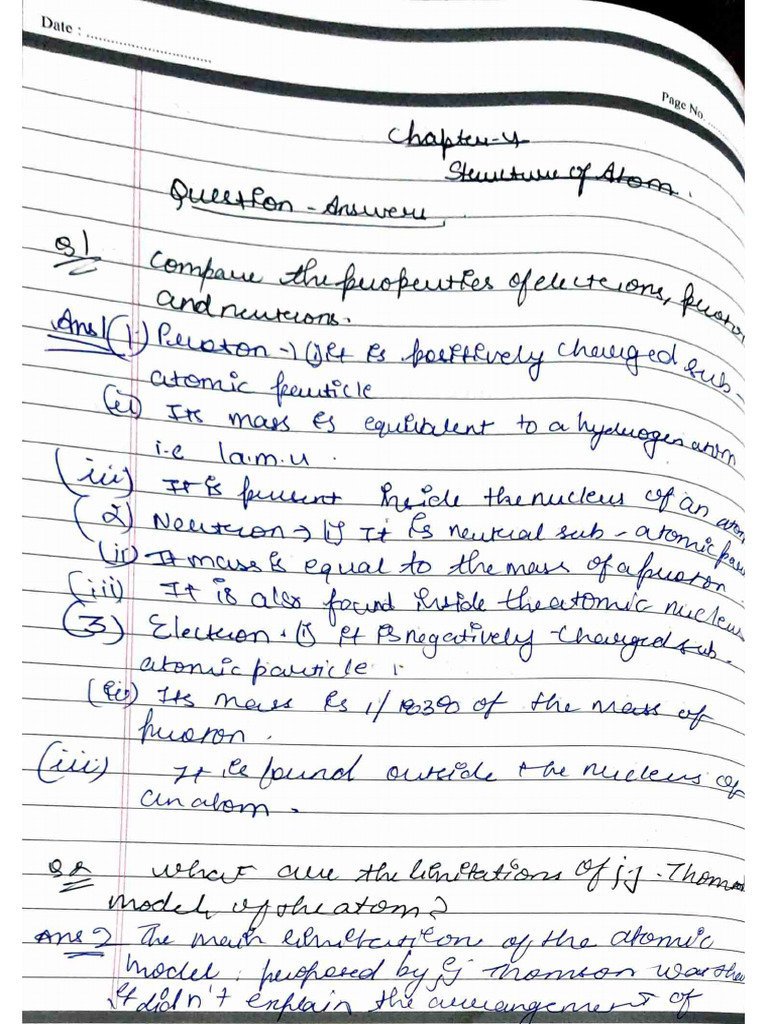 Date : ..............................
Page No. ........
Chapter-4
Structure of Atom.
Question - Answers
Q1 Compare the properties of electrons, proton
and neutrons.
Ans1 (1.) Proton → (i) It is positively charged sub-
atomic particle
(ii) Its mass is equivalent to a hydrogen atom
i.e 1a.m.u.
(iii) It is present inside the nucleus of an atom
(2) Neutron → (i) It is neutral sub-atomic
(ii) It mass is equal to the mass of a proton
(iii) It is also found inside the atomic nucleus
(3) Electron. (i) It is negatively charged sub-
atomic particle.
(ii) Its mass is of the mass of
proton.
(iii) It is found outside the nucleus of
an atom.
Q2 What are the limitations of J.J. Thom
model of the atom?
Ans 2 The main limitation of the atomic
model. proposed by JJ Thomson was
It didn't explain the arrangement of